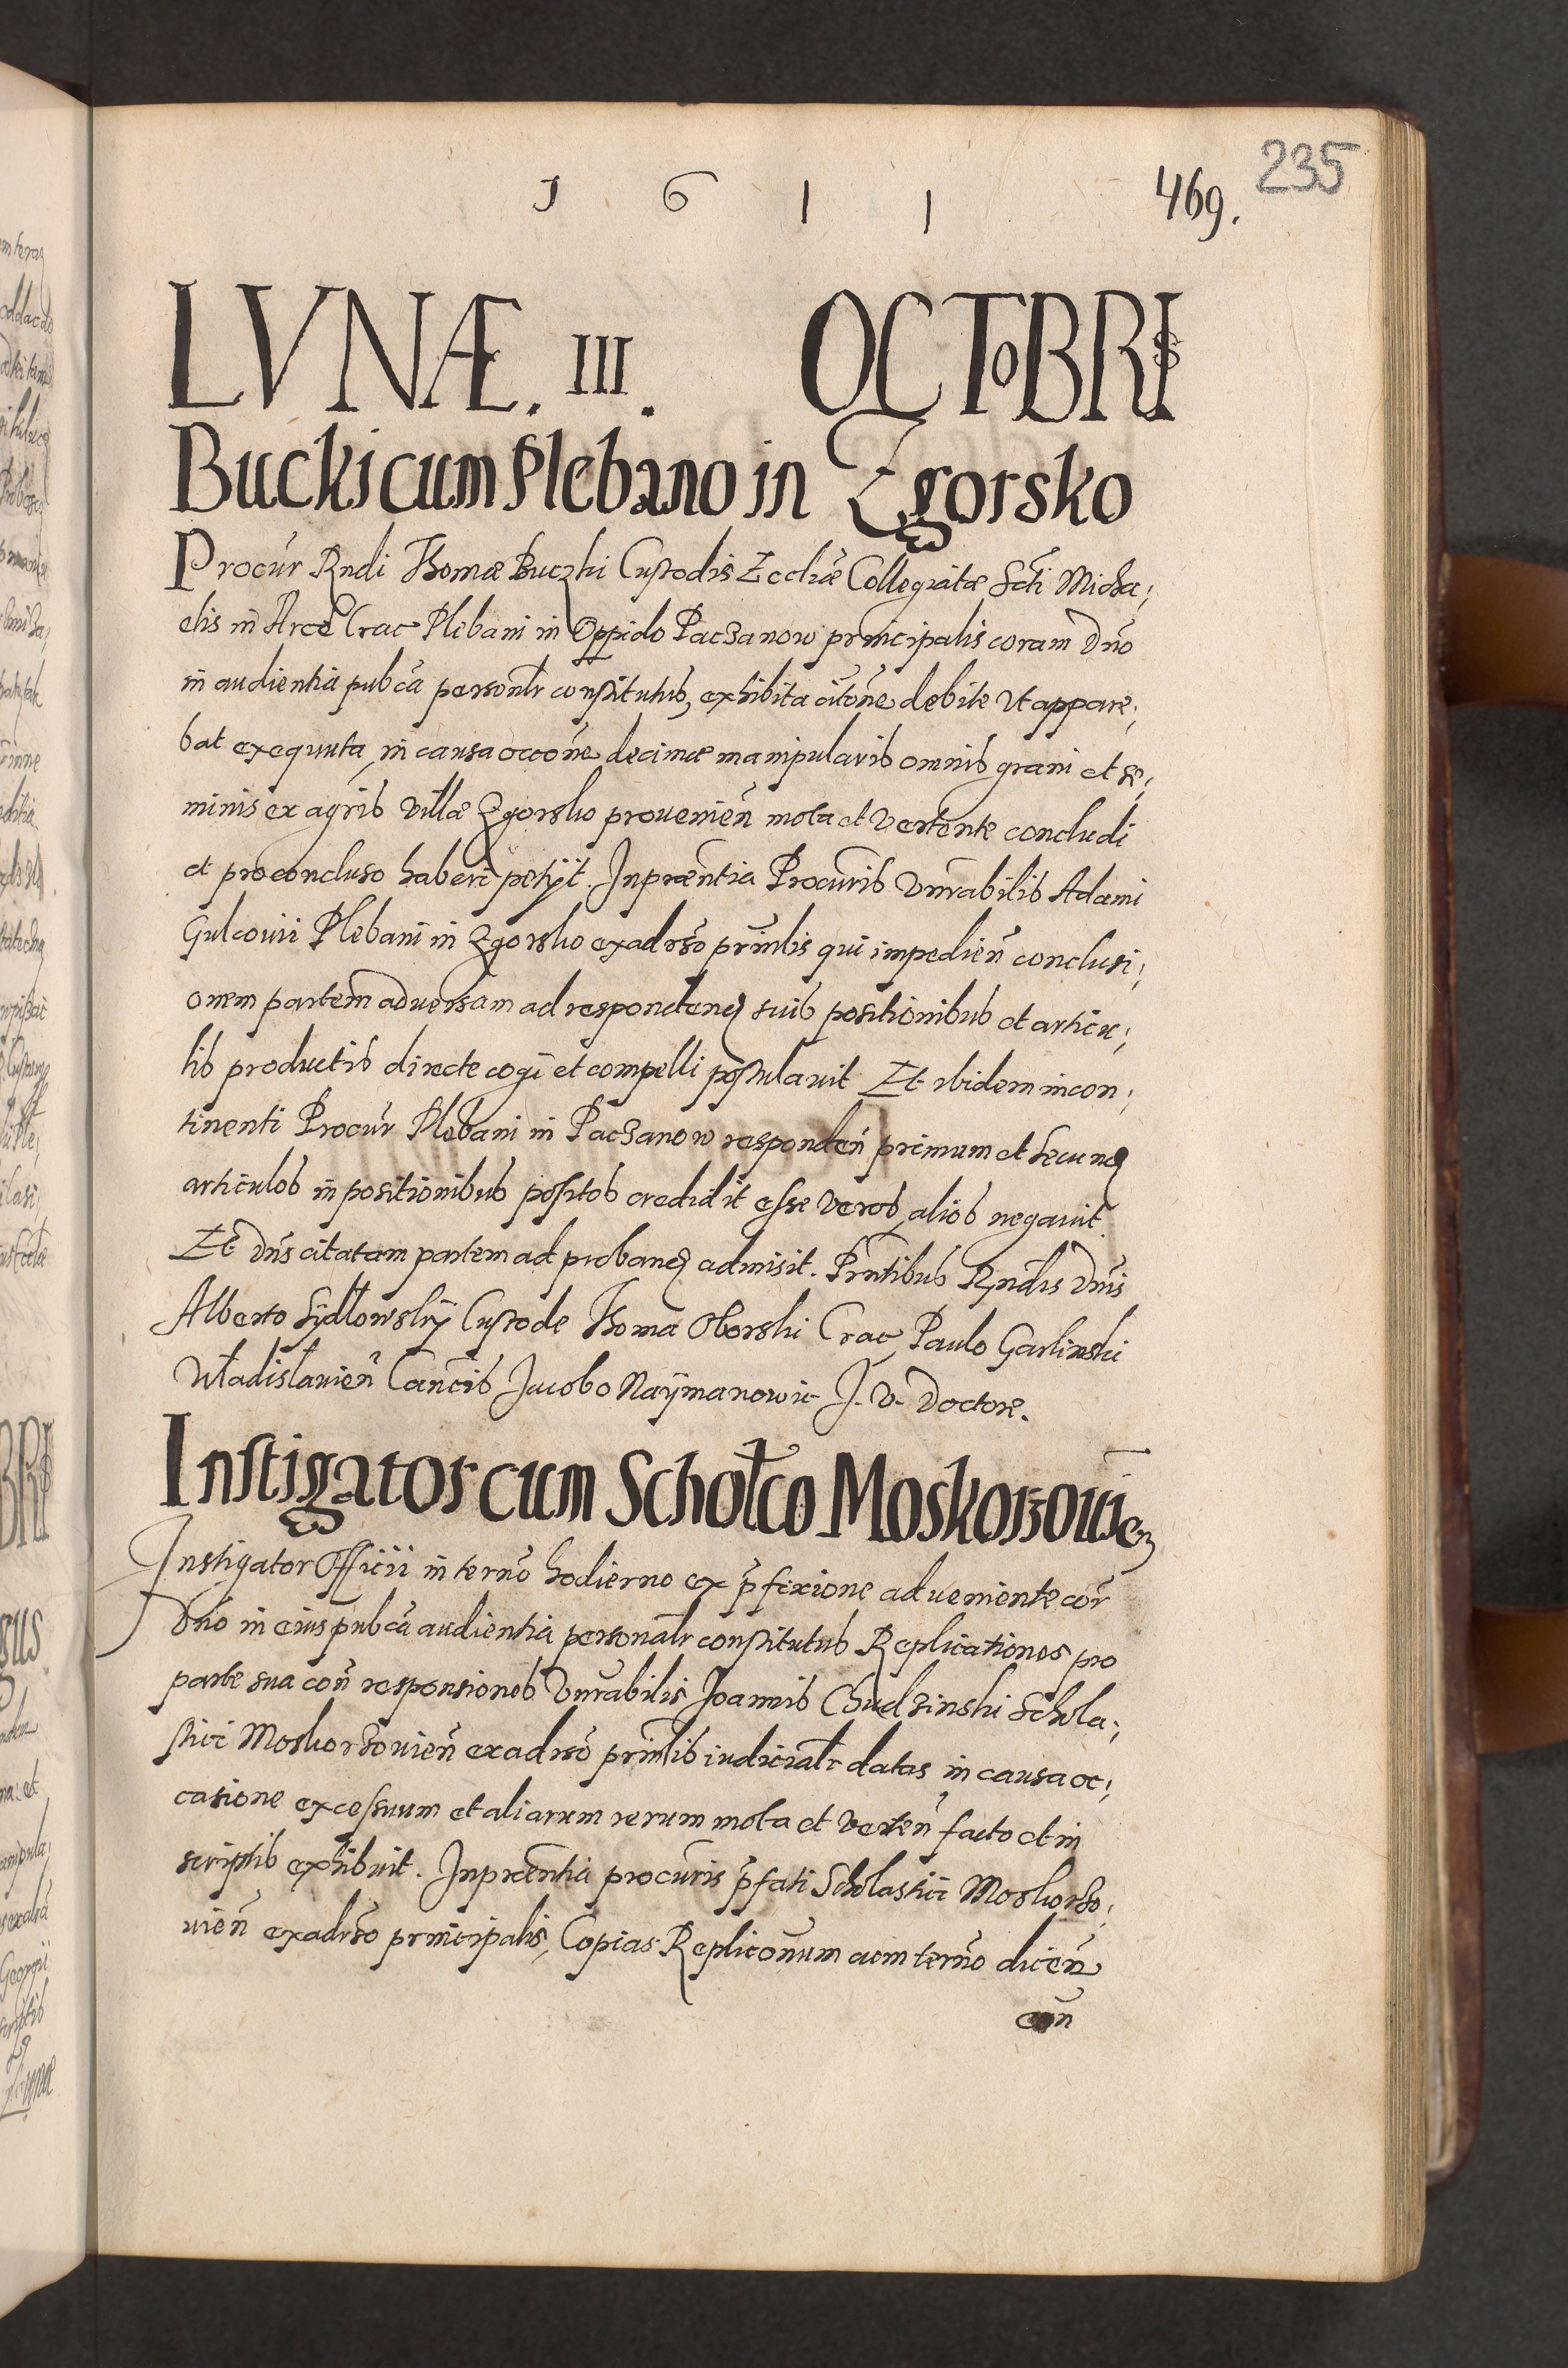 1 6 1 1
469. 235
LVNÆ. III. OCTOBRIS
Bucki cum Plebano in Zgorsko
Procūr Rndi Thomæ Buczki Custodis Eccliæ Collegiatæ Scti Micha;
elis in Arce Crac Plebani in Oppido Paczanow principalis coram Dno
in audientia pubca personlr constitutus, exhibita citōne debite vt appare;
bat exequuta, in causa occōne decimæ manipularis omnis grani et se;
minis ex agris villæ Zgorsko prouenieñ mota et vertente concludi
et pro concluso haberi petijt. In prœntia Procuris Vnrabilis Adami
Gulcouii Plebani in Zgorsko exadrso prinlis qui impedieñ conclusi;
onem partem aduersam ad respondend suis positionibus et articu;
lis productis directe cogi et compelli postulauit Et ibidem incon;
tinenti Procūr Plebani in Paczanow respondeñ primum et secund
articulos in positionibus positos credidit esse veros, alios negauit
Et Dns citatam partem ad proband admisit. Prntibus Rndis Dnis
Alberto Sydłowskÿ Custode Thoma Oborski Crac, Paulo Garlinski
Władislauieñ Cancis Jacobo Naÿmanowic J. V. Doctore.
Instigator cum Schołco Moskorzowień
Instigator Officii in terño hodierno ex p̄fixione adueniente cor̄
Dno in eius pubca audientia personalr constitutus Replicationes pro
parte sua coñ responsiones Vnrabilis Joannis Chudzinski Schola;
stici Moskorzouieñ exadrso prinlis iudicialr datas in causa oc;
casione excessuum et aliarum rerum mota et verteñ facto et in
scriptis exhibuit. In prœntia procuris p̄fati Scholastici Moskorzo;
uieñ exadrso principalis, Copias Replicōnum cum terño diceñ
coñ